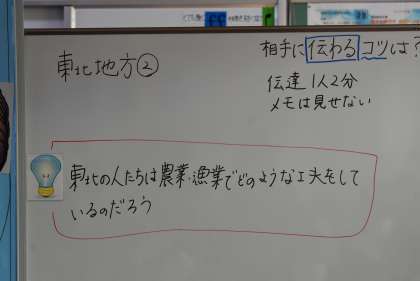 東北地方②
相手に伝わるコツは?
伝達1人2分
メモは見せない
東北の人たちは農業・漁業でどのような工夫をして
いるのだろう